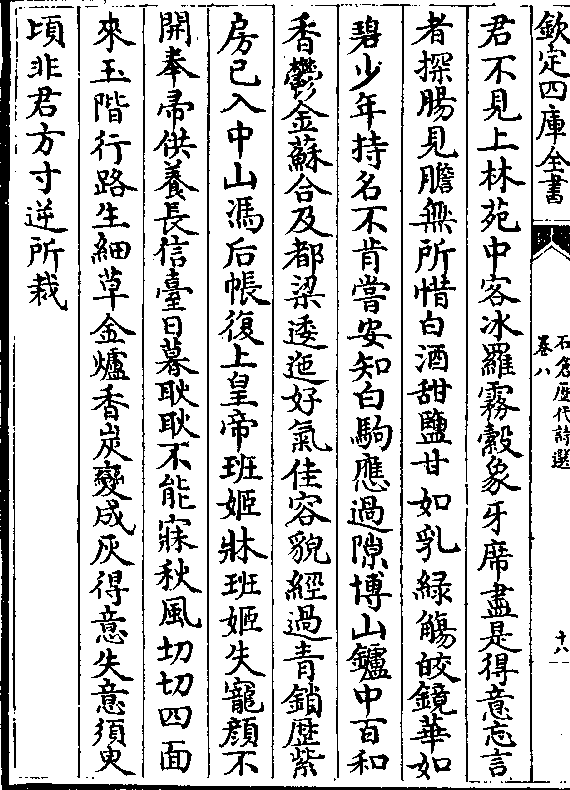 欽定四庫全書
石倉歷代詩選
卷八
十八
君不見上林苑中客冰羅霧縠象牙席盡是得意忘言
者探腸見膽無所惜白酒甜鹽甘如乳綠觴皎鏡華如
碧少年持名不肯嘗安知白駒應過隙博山鑪中百和
香鬱金蘇合及都梁逶迤好氣佳容貌經過青鎖歷紫
房已入中山馮后帳復上皇帝班姬牀班姬失寵顔不
開奉帚供養長信臺日暮耿耿不能寐秋風切切四面
來玉階行路生細草金爐香炭變成灰得意失意須臾
頃非君方寸逆所裁